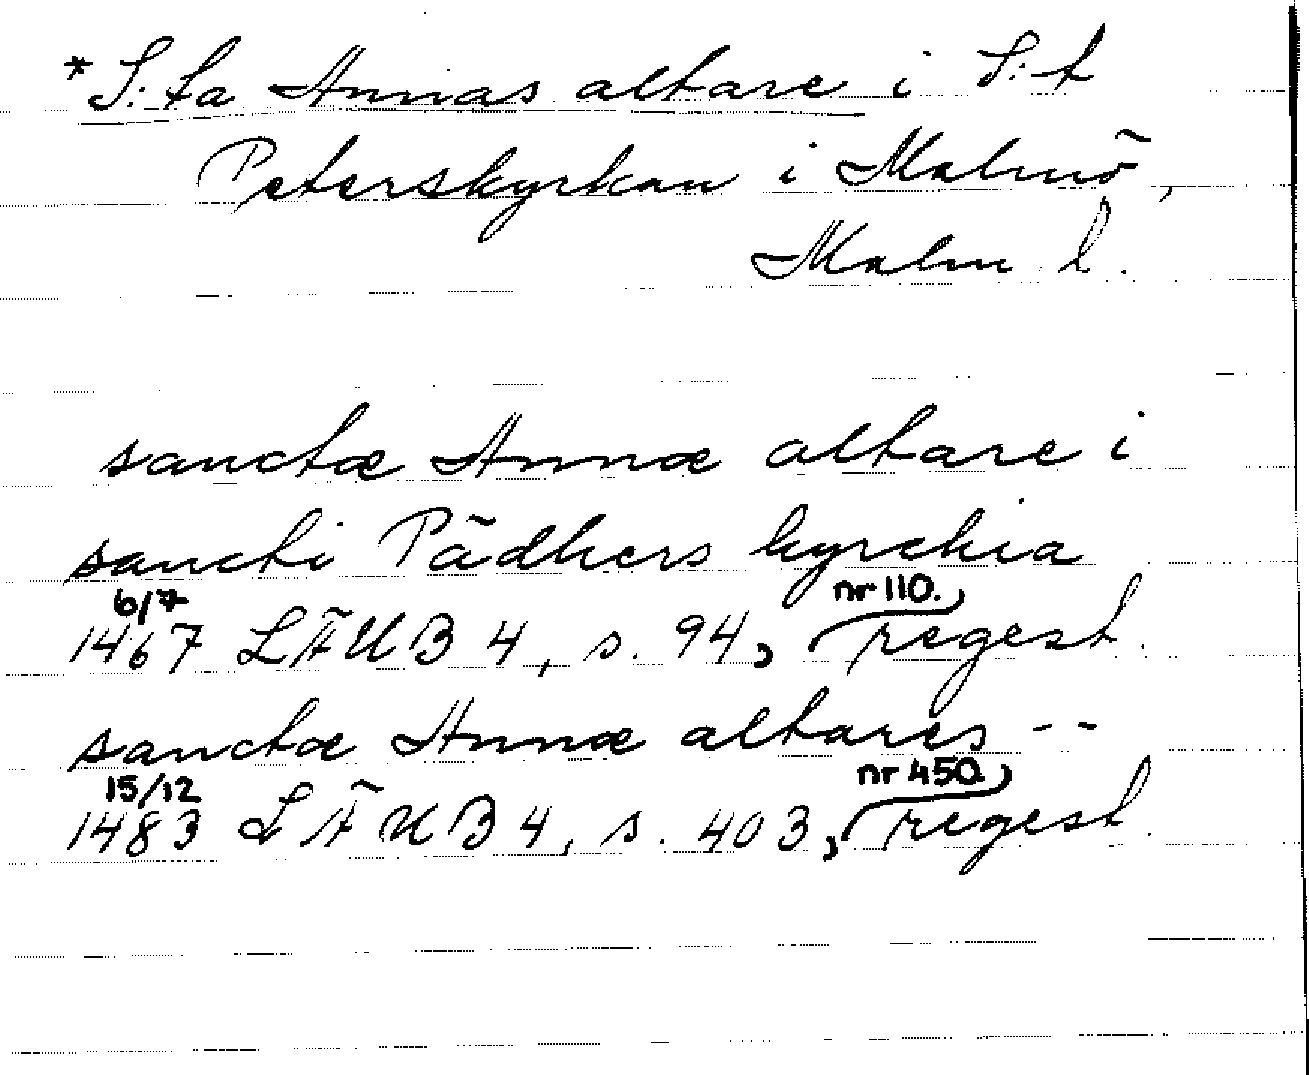 *S:ta Annas altare i S:t
Peterskyrkan i Malmö,
Malm h.
sanctæ Annæ altare i
sancti Pädhers kyrchia
6/7 nr 110.
1467 LÄUB 4, s. 94, regest.
sanctæ Annæ altares --
15/12 nr 450
1483 LÄUB 4, s. 403, regest.